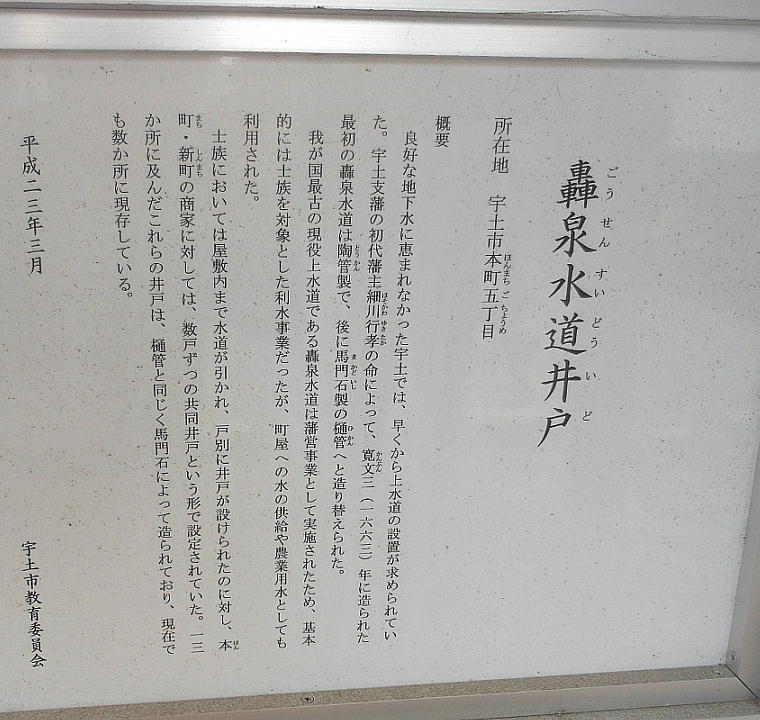 轟泉水道井戸
ごうせんすいどういど
所在地　宇土市本町五丁目
ほんまち ご ちょうめ
概要
良好な地下水に恵まれなかった宇土では、早くから上水道の設置が求められてい
た。宇土支藩の初代藩主細川行孝の命によって、寛文三（一六六三）年に造られた
ほそかわ ゆきたか かんぶん
最初の轟泉水道は陶管製で、後に馬門石製の樋管へと造り替えられた。
とうかん まかどいし ひかん
我が国最古の現役上水道である轟泉水道は藩営事業として実施されたため、基本
的には士族を対象とした利水事業だったが、町屋への水の供給や農業用水としても
利用された。
士族においては屋敷内まで水道が引かれ、戸別に井戸が設けられたのに対し、本
ほん
町・新町の商家に対しては、数戸ずつの共同井戸という形で設定されていた。一三
まち しんまち
か所に及んだこれらの井戸は、樋管と同じく馬門石によって造られており、現在で
も数か所に現存している。
平成二三年三月
宇土市教育委員会